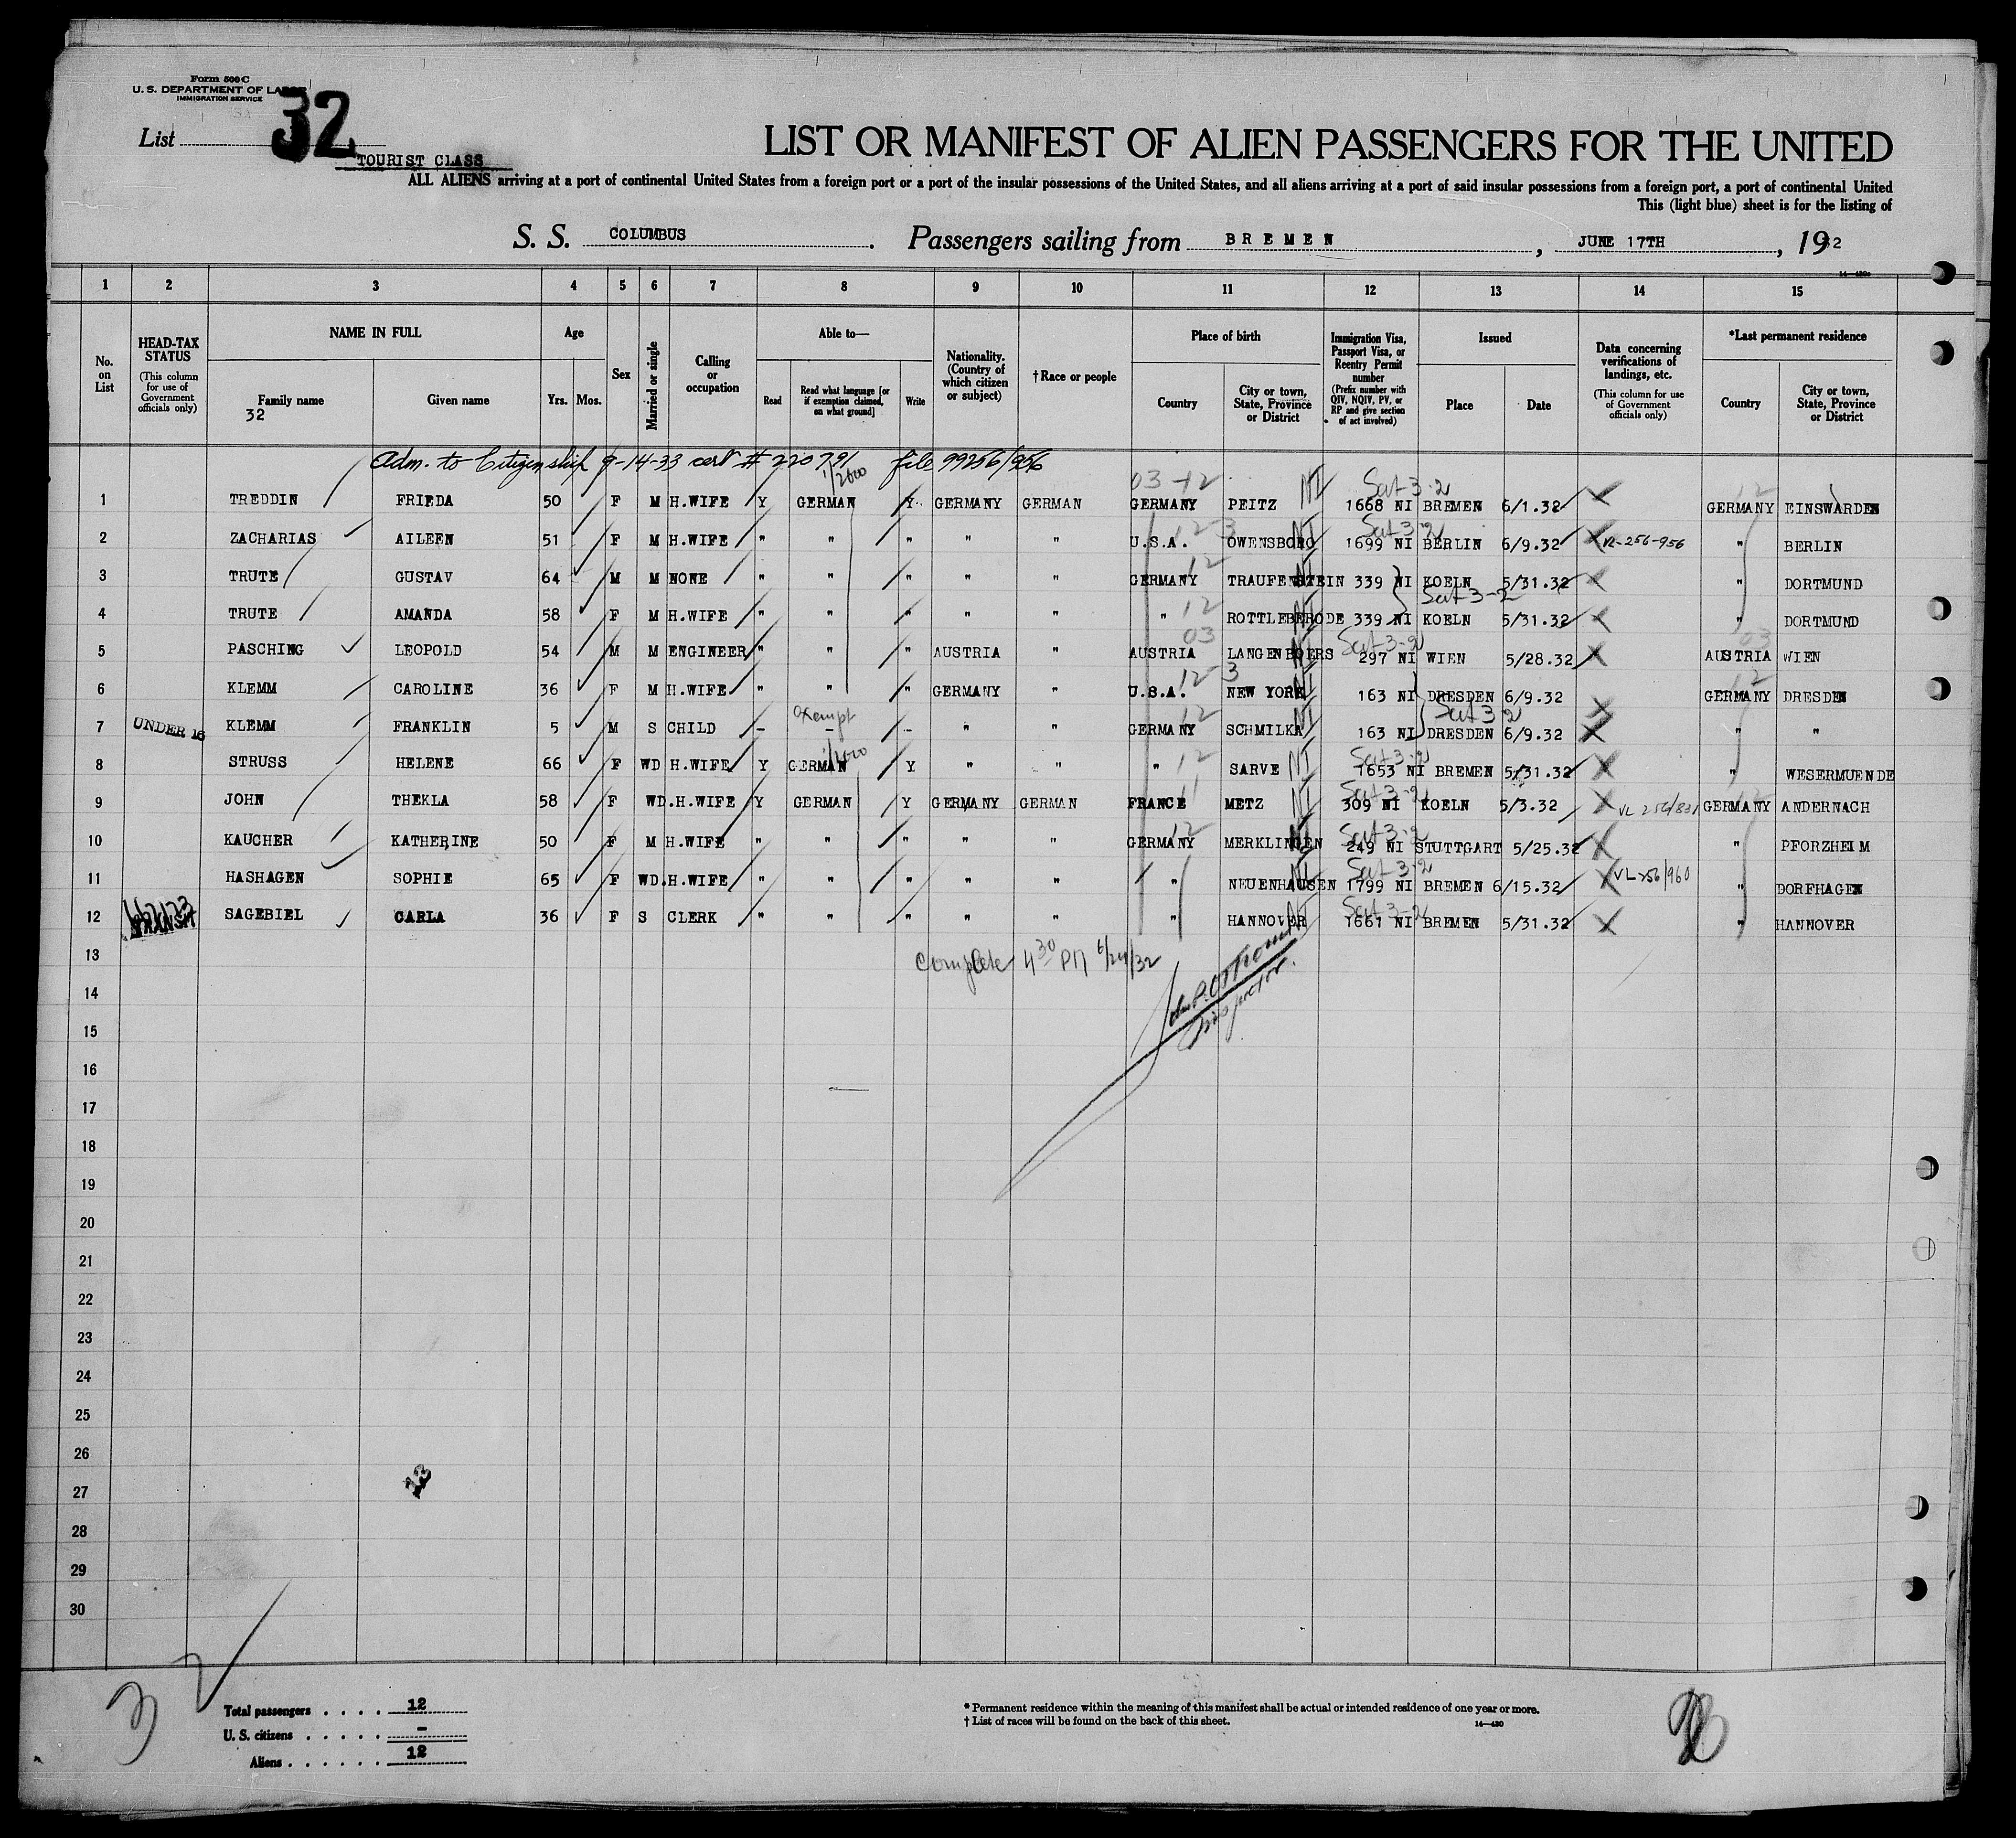 Form 500 C
U. S. DEPARTMENT OF LABOR
IMMIGRATION SERVICE
List 32
TOURIST CLASS
LIST OR MANIFEST OF ALIEN PASSENGERS FOR THE UNITED
ALL ALIENS arriving at a port of continental United States from a foreign port or a port of the insular possessions of the United States, and all aliens arriving at a port of said insular possessions from a foreign port, a port of continental United
This (light blue) sheet is for the listing of
S. S. COLUMBUS. Passengers sailing from BREMEN, JUNE 17TH, 1932
1 2 3 4 5 6 7 8 9 10 11 12 13 14 15
No. on List
HEAD-TAX STATUS (This column for use of Government officials only)
NAME IN FULL
Family name 32
Given name
Age
Yrs. Mos.
Sex
Married or single
Calling or occupation
Able to—
Read
Read what language [or if exemption claimed, on what ground]
Write
Nationality. (Country of which citizen or subject)
† Race or people
Place of birth
Country
City or town, State, Province or District
Immigration Visa, Passport Visa, or Reentry Permit number (Prefix number with QIV, NQIV, PV, or RP and give section of act involved)
Issued
Place
Date
Data concerning verifications of landings, etc. (This column for use of Government officials only)
*Last permanent residence
Country
City or town, State, Province or District
Adm. to Citizenship 9-14-33 cert # 220791 file 99256/956
1 TREDDIN FRIEDA 50 F M H.WIFE Y GERMAN Y GERMANY GERMAN GERMANY PEITZ 1668 NI BREMEN 6/1.32 GERMANY EINSWARDEN
2 ZACHARIAS AILEEN 51 F M H.WIFE " " " " " U.S.A. OWENSBORO 1699 NI BERLIN 6/9.32 " BERLIN
3 TRUTE GUSTAV 64 M M NONE " " " " " GERMANY TRAUFENSTEIN 339 NI KOELN 5/31.32 " DORTMUND
4 TRUTE AMANDA 58 F M H.WIFE " " " " " " ROTTLEBERODE 339 NI KOELN 5/31.32 " DORTMUND
5 PASCHING LEOPOLD 54 M M ENGINEER " " " AUSTRIA " AUSTRIA LANGENBOERS 297 NI WIEN 5/28.32 AUSTRIA WIEN
6 KLEMM CAROLINE 36 F M H.WIFE " " " GERMANY " U.S.A. NEW YORK 163 NI DRESDEN 6/9.32 GERMANY DRESDEN
7 UNDER 16 KLEMM FRANKLIN 5 M S CHILD – exempt – – " " GERMANY SCHMILKA 163 NI DRESDEN 6/9.32 " "
8 STRUSS HELENE 66 F WD H.WIFE Y GERMAN Y " " " SARVE 1653 NI BREMEN 5/31.32 " WESERMUENDE
9 JOHN THEKLA 58 F WD. H.WIFE Y GERMAN Y GERMANY GERMAN FRANCE METZ 309 NI KOELN 5/3.32 GERMANY ANDERNACH
10 KAUCHER KATHERINE 50 F M H.WIFE " " " " " GERMANY MERKLINGEN 249 NI STUTTGART 5/25.32 " PFORZHEIM
11 HASHAGEN SOPHIE 65 F WD. H.WIFE " " " " " " NEUENHAUSEN 1799 NI BREMEN 6/15.32 VL 256/960 " DORFHAGEN
12 TRANSIT SAGEBIEL CARLA 36 F S CLERK " " " " " " HANNOVER 1661 NI BREMEN 5/31.32 " HANNOVER
13 Complete 4 30 PM 6/24/32
Inspector.
14
15
16
17
18
19
20
21
22
23
24
25
26
27
28
29
30
Total passengers . . . . 12
U. S. citizens . . . . . –
Aliens . . . . . . 12
* Permanent residence within the meaning of this manifest shall be actual or intended residence of one year or more.
† List of races will be found on the back of this sheet.
14—430